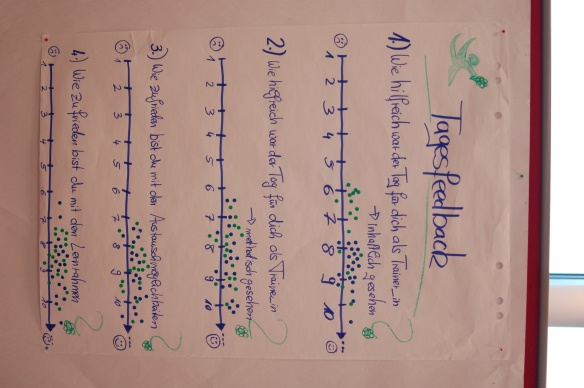 Tagesfeedback
1.) Wie hilfreich war der Tag für dich als Trainer_in
→ inhaltlich gesehen
1 2 3 4 5 6 7 8 9 10 ...
2.) Wie hilfreich war der Tag für dich als Trainer_in
→ methodisch gesehen
1 2 3 4 5 6 7 8 9 10 ...
3.) Wie zufrieden bist du mit den Austauschmöglichkeiten
1 2 3 4 5 6 7 8 9 10 ...
4.) Wie zufrieden bist du mit dem Lernrahmen
1 2 3 4 5 6 7 8 9 10